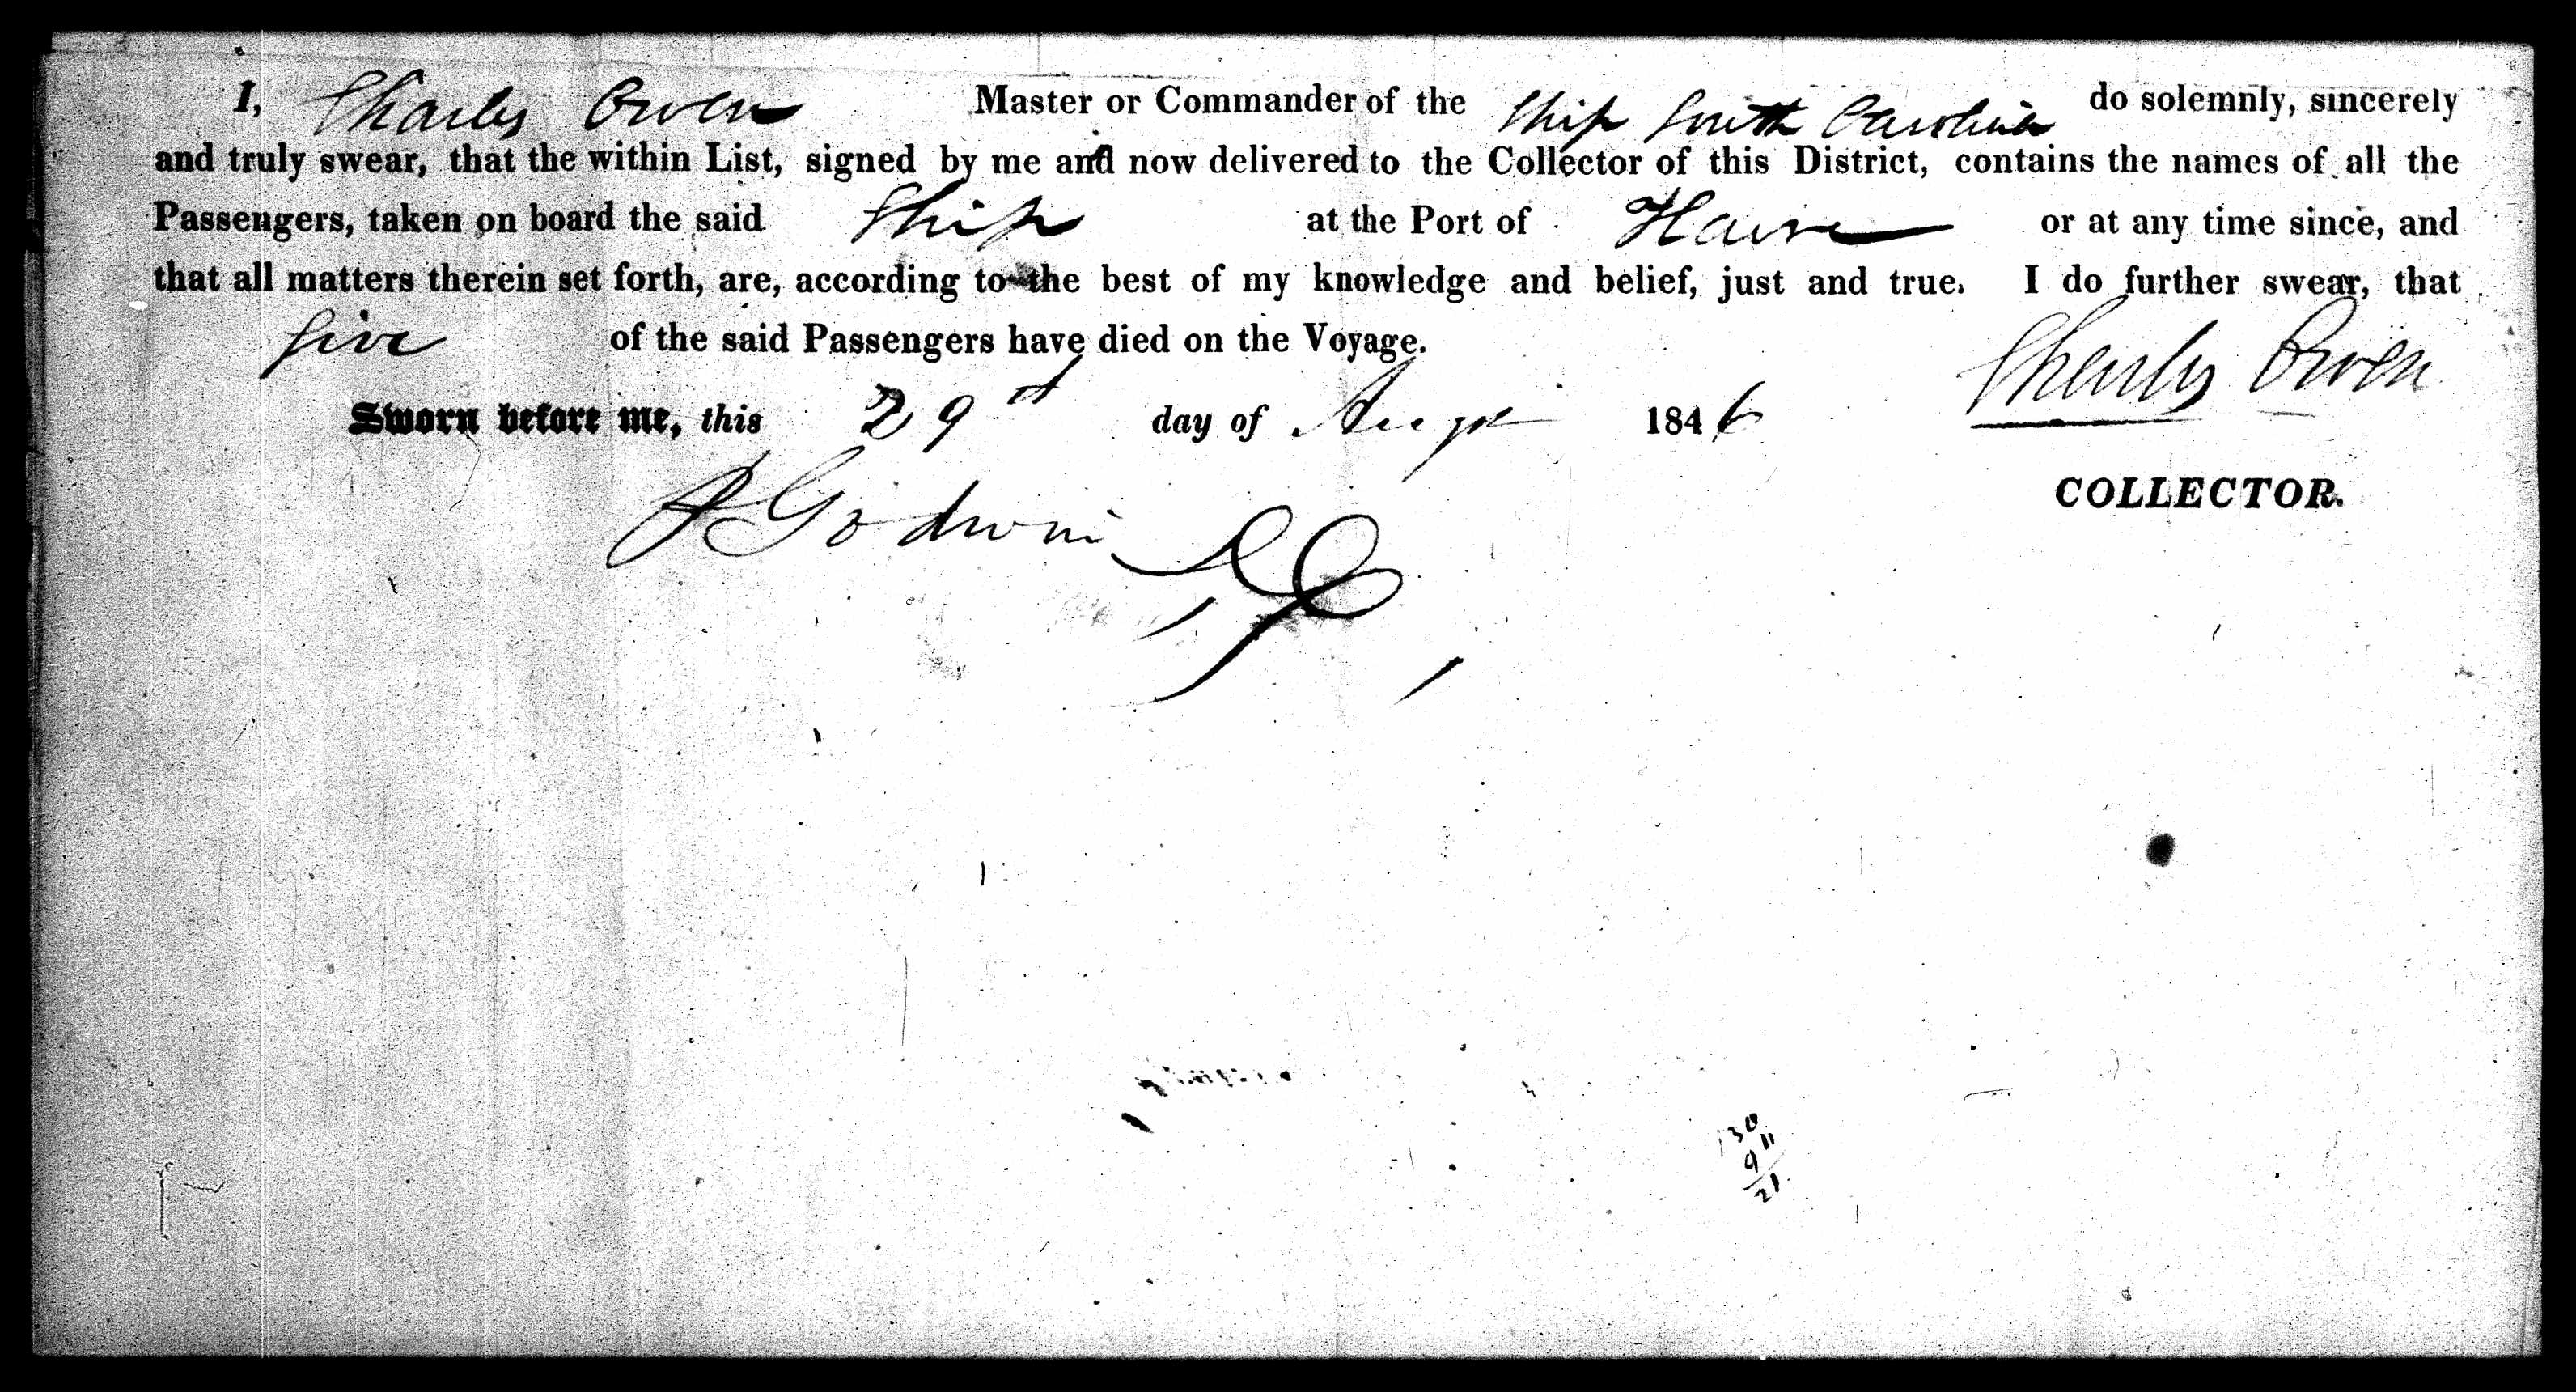 I, Charles Owen Master or Commander of the Ship South Carolina do solemnly, sincerely
and truly swear, that the within List, signed by me and now delivered to the Collector of this District, contains the names of all the
Passengers, taken on board the said Ship at the Port of Havre or at any time since, and
that all matters therein set forth, are, according to the best of my knowledge and belief, just and true. I do further swear, that
five of the said Passengers have died on the Voyage.
Charles Owen
Sworn before me, this 29th day of Augt 1846
COLLECTOR.
A Godwin
130
9
21